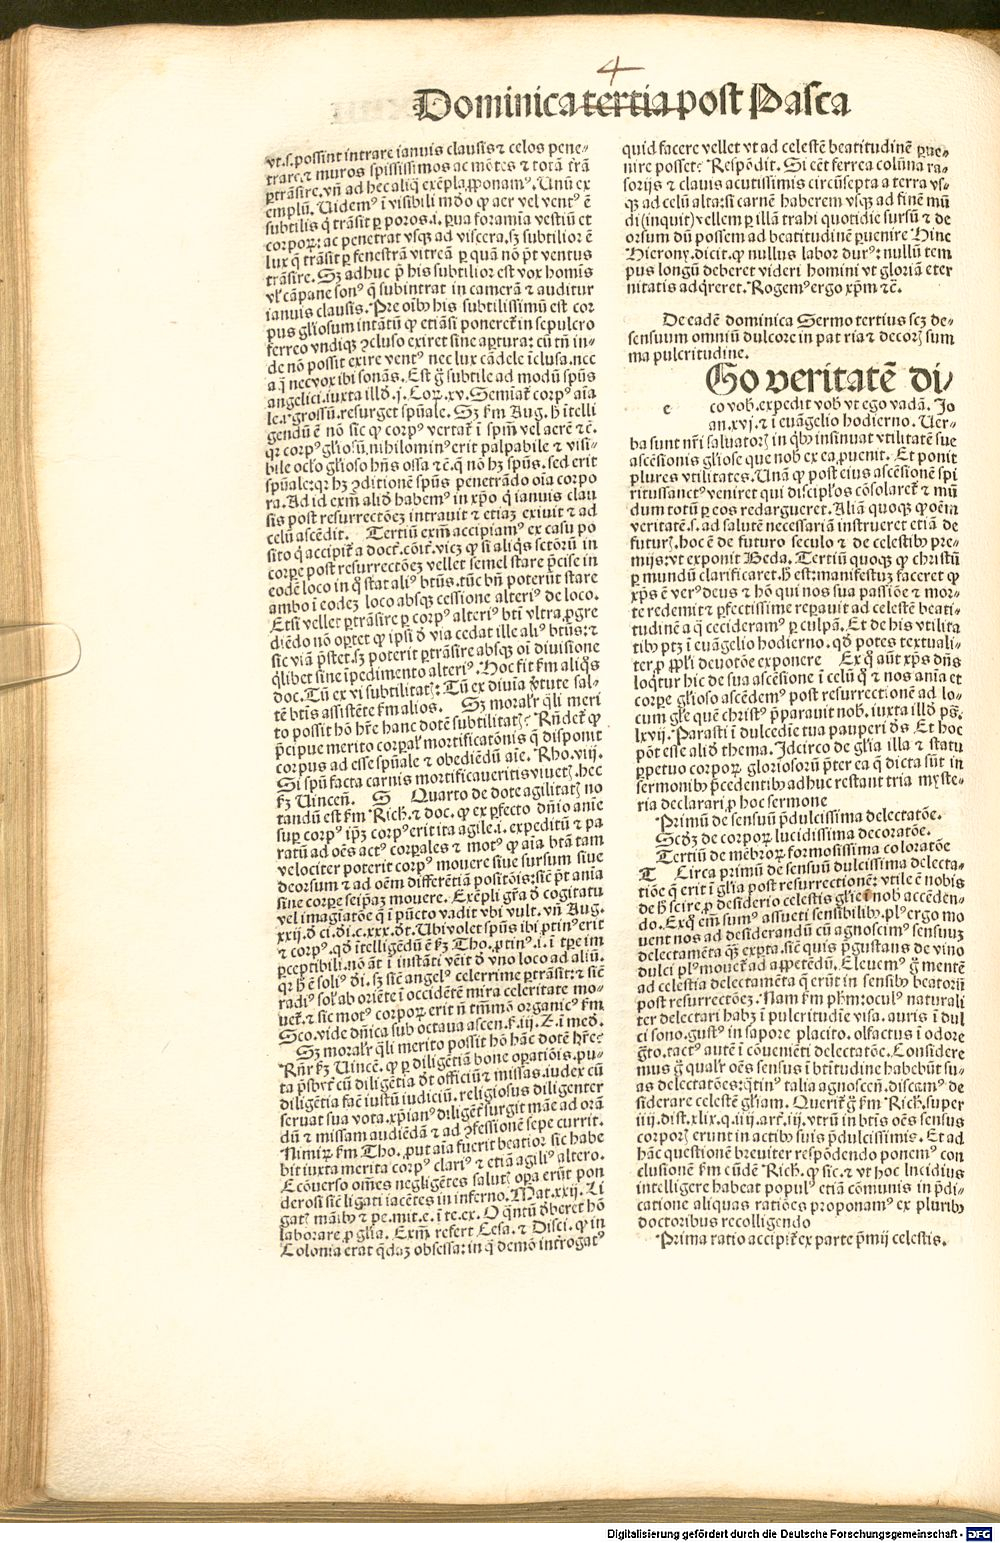 4
Dominica tertia post Pasca
vt.s.possint intrare ianuis clausis ⁊ celos pene⸗
trare.⁊ muros spississimos ac mōtes ⁊ totā t̄rā
ꝑtrāsire.vñ ad hec aliq̄ exēpla ꝓponamꝰ. Unū ex
emplū. Uidemꝰ ī visibili mūdo ꝙ aer vel ventꝰ ē
subtilis q̇ trāsit ꝑ poros.i. ꝑua foramīa vestiū et
corpoꝝ: ac penetrat vsqꝫ ad viscera.sꝫ subtilior ē
lux q̄ trāsit ꝑ fenestrā vitreā ꝑ quā nō pōt ventus
trāsire. Sꝫ adhuc p̄ his subtilior est vox homīs
vl̓ cāpane sonꝰ q̄ subintrat in camerā ⁊ auditur
ianuis clausis. Pre oībꝰ his subtilissimū est cor
pus gl̓iosum intātū ꝙ etiāsi poneret̄ in sepulcro
ferreo vndiqꝫ ꝯcluso exiret sine aꝑtura: cū tn̄ in⸗
de nō possit exire ventꝰ nec lux cādele īclusa.nec
a q̄ nec vox ibi sonās. Est g̊ subtile ad modū spūs
angelici.iuxta illd̓.j. Coꝝ.xv. Semiāt̄ corpꝰ aīa
le.i.grossū.resurget spūale. Sꝫ ẜm Aug. h̄ ītelli
gendū ē nō sic̄ ꝙ corpꝰ vertat̄ ī spm̄ vel aerē ⁊c̄.
qꝛ corpꝰ gl̓iosū.nihilominꝰ erit palpabile ⁊ visi⸗
bile oc̓lo gl̓ioso hn̄s ossa ⁊c̄.q̄ nō hꝫ spūs.sed erit
spūale:qꝛ hꝫ ꝯditionē spūs penetrādo oīa corpo
ra. Ad id exm̄ aliō habemꝰ in xp̄o q̇ ianuis clau
sis post resurrectōeꝫ intrauit ⁊ etiaꝫ exiuit ⁊ ad
celū ascēdit. Tertiū exm̄ accipiamꝰ ex casu po
sito q̇ accipit̄ a doct̓. cōit̓.vicꝫ ꝙ si aliq̇s sctōrū in
corꝑe post resurrectōeꝫ vellet semel stare p̄cise in
eodē loco in q̊ stat aliꝰ btūs.tūc bn̄ poterūt stare
ambo ī eodeꝫ loco absqꝫ cessione alteriꝰ de loco.
Etsi vellet ꝑtrāsire ꝑ corpꝰ alteriꝰ btī vltra ꝓgre
diēdo nō oꝑtet ꝙ ipsi d̓ via cedat ille aliꝰ btūs:⁊
sic viā p̄stet.sꝫ poterit ꝑtrāsire absqꝫ oī diuisione
q̄libet sine īpedimento alteriꝰ. Hoc fit ẜm aliq̇s
doc. Tū ex vi subtilitat̓: Tū ex diuīa v̓tute sal⸗
tē btīs assistēte ẜm alios. Sꝫ moral̓r q̄li meri
to possit hō hr̄e hanc dotē subtilitat̓? Rn̄det̄ ꝙ
p̄cipue merito corꝑal̓ mortificatōnis q̄ disponit
corpus ad esse spūale ⁊ obediēdū aīe. Rho.viij.
Si spū facta carnis mortificaueritis viuet̓.hec
ẜꝫ Uincen̄. S Quarto de dote agilitat̓ no
tandū est ẜm Rich.⁊ doc. ꝙ ex ꝑfecto dn̄io anie
suꝑ corpꝰ ip̄ꝫ corpꝰ erit ita agile.i. expeditū ⁊ pa
ratū ad oēs actꝰ corꝑales ⁊ motꝰ ꝙ aīa btā tam
velociter poterit corpꝰ mouere siue sursum siue
deorsum ⁊ ad oēm differētiā positōis:sic̄ pōt anīa
sine corꝑe seipꝫ mouere. Exēpli gr̄a d̓ cogitatu
vel imagīatōe q̄ ī pūcto vadit vbi vult. vn̄ Aug.
xxij.d̓ ci.d̓i.c.xxx.d̓t. Ubi volet spūs ibi ꝓtinꝰ erit
⁊ corpꝰ.qd̓ ītelligēdū ē ẜꝫ Tho. ꝓtinꝰ.i. ī tꝑe im
ꝑceptibili.nō āt ī instāti vēit d̓ vno loco ad aliū.
qꝛ h̄ ē soliꝰ d̓i. sꝫ sic̄ angelꝰ celerrime ꝑtrāsit:⁊ sic̄
radiꝰ sol̓ ab oriēte ī occidētē mira celeritate mo⸗
uet̄.⁊ sic motꝰ corpoꝝ erit n̄ tm̄mō organicꝰ ẜm
Sco.vide dn̄ica sub octaua ascen.ẜ.iij. Z. ī med̓.
Sꝫ moral̓r q̄li merito possit hō hāc dotē hr̄e?
Rn̄r ẜꝫ Uincē. ꝙ ꝑ diligētiā bone oꝑatiōis.pu⸗
ta p̄sbyt̄ cū diligētia d̓t officiū ⁊ missas.iudex cū
diligētia faē iustū iudiciū. religiosus diligenter
seruat sua vota.xp̄ianꝰ diligēt̓ surgit māe ad orā
dū ⁊ missam audiēdā ⁊ ad ꝯfessionē sepe currit.
Nimiꝝ ẜm Tho. ꝓut aīa fuerit beatior sic habe
bit iuxta merita corpꝰ clariꝰ ⁊ etiā agiliꝰ altero.
Ecōuerso om̄es negligētes salut̓ oꝑa erūt pon
derosi sic̄ ligati iacētes in inferno. Mat.xxij. Li
gat̓ māibꝰ ⁊ pe.mit.e.ī te.ex. O q̄ntū d̓beret hō
laborare ꝓ gl̓ia. Exm̄ refert Cesa.⁊ Disci. ꝙ in
Colonia erat q̄daꝫ obsessa:in q̄ demō int̓rogatꝰ
quid facere vellet vt ad celestē beatitudinē ꝑue⸗
nire posset? Respōdit. Si eēt ferrea colūna ra⸗
sorijs ⁊ clauis acutissimis circūsepta a terra vs⸗
qꝫ ad celū alta:si carnē haberem vsqꝫ ad finē mū
di(inquit)vellem ꝑ illā trahi quotidie sursū ⁊ de
orsum dū possem ad beatitudinē ꝑuenire Hinc
Hierony.dicit.ꝙ nullus labor durꝰ: nullū tem
pus longū deberet videri homini vt gloriā eter
nitatis adq̇reret. Rogemꝰ ergo xp̄m ⁊c̄.
De eadē dominica Sermo tertius scꝫ de⸗
sensuum omniū dulcore in pat ria ⁊ decorꝫ sum
ma pulcritudine.
Go veritatē di⸗
e
co vob̓.expedit vob̓ vt ego vadā. Jo
an.xvj.⁊ ī euāgelio hodierno. Uer⸗
ba sunt nr̄i saluatorꝫ in q̇bꝰ insinuat vtilitatē sue
ascēsionis gl̓iose que nob̓ ex ea ꝓuenit. Et ponit
plures vtilitates. Unā ꝙ post eius ascēsionē spi
ritussanctꝰ veniret qui discipl̓os cōsolaret̄ ⁊ mū
dum totū ꝑ eos redargueret. Aliā quoqꝫ ꝙ oēm
veritatē.s. ad salutē necessariā instrueret etiā de
futurꝫ.hoc ē de futuro seculo ⁊ de celestibꝰ pre⸗
mijs:vt exponit Beda. Tertiū quoqꝫ ꝙ christū
ꝑ mundū clarificaret.h̄ est:manifestuꝫ faceret ꝙ
xp̄s ē verꝰ deus ⁊ hō qui nos sua passiōe ⁊ mor⸗
te redemit ⁊ ꝑfectissime reꝑauit ad celestē beati⸗
tudinē a q̄ cecideramꝰ ꝑ culpā. Et de his vtilita
tibꝰ ptꝫ ī euāgelio hodierno. qd̓ potes textuali⸗
ter ꝓ ppl̓i deuotōe exponere Ex q̊ aūt xp̄s dn̄s
loq̇tur hic de sua ascēsione ī celū q̊ ⁊ nos anīa et
corꝑe gl̓ioso ascēdemꝰ post resurrectionē ad lo⸗
cum gl̓ie quē christꝰ p̄parauit nob̓. iuxta illd̓ pš.
lxvij. Parasti ī dulcedīe tua pauperi d̓s Et hoc
pōt esse aliō thema. Jdcirco de gl̓ia illa ⁊ statu
ꝑpetuo corpoꝝ gloriosorū p̄ter ea q̄ dicta sūt in
sermonibꝰ p̄cedentibꝰ adhuc restant tria myste⸗
ria declarari ꝓ hoc sermone
Primū de sensuū p̄dulcissima delectatōe.
Scd̓ꝫ de corpoꝝ lucidissima decoratōe.
Tertiū de mēbroꝝ formosissima coloratōe
T Circa primū de sensuū dulcissima delecta⸗
tiōe q̄ erit ī gl̓ia post resurrectionē: vtile ē nobis
de h̄ scire.ꝓ desiderio celestis gl̓ie ī nob̓ accēden⸗
do. Exq̊ em̄ sumꝰ assueti sensibilibꝰ.plꝰ ergo mo
uent nos ad desiderandū cū agnoscimꝰ sensuuꝫ
delectamēta qꝫ̄ exꝑta.sic̄ quis p̄gustans de vino
dulci plꝰ mouet̄ ad appetēdū. Eleuemꝰ g̊ mentē
ad celestia delectamēta q̄ erūt in sensibꝰ beatorū
post resurrectōeꝫ. Nam ẜm phm̄:oculꝰ naturali
ter delectari habꝫ ī pulcritudīe visa. auris ī dul
ci sono.gustꝰ in sapore placito. olfactus ī odore
g̊to.tactꝰ autē ī cōueniēti delectatōe. Considere
musg̊ qual̓r oēs sensus ī btītudine habebūt su⸗
as delectatōes:q̄tinꝰ talia agnoscen̄.discamꝰ de
siderare celestē gl̓iam. Querit̄ g̊ ẜm Rich.super
iiij.dist.xlix.q.iiij.art̓.iij.vtrū in btīs oēs sensus
corporꝫ erunt in actibꝰ suis p̄dulcissimis. Et ad
hāc questionē breuiter respōdendo ponemꝰ con
clusionē ẜm eūdē Rich.ꝙ sic.⁊ vt hoc lucidius
intelligere habeat populꝰ etiā cōmunis in p̄di⸗
catione aliquas ratiōes proponamꝰ ex pluribꝰ
doctoribus recolligendo
Prima ratio accipit̄ ex parte p̄mij celestis.
Digitalisierung gefördert durch die Deutsche Forschungsgemeinschaft - DFG